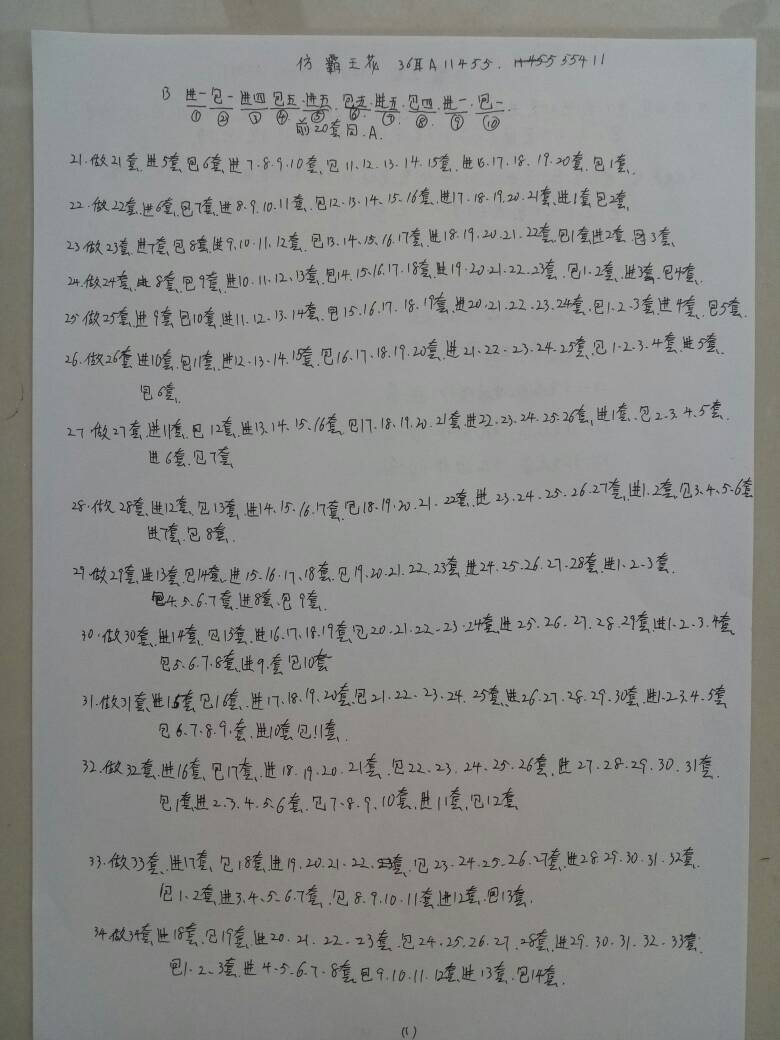 仿霸王花 36耳A11455. 11455 55411
B 进一 包一 进四 包五 进五 包五 进五 包四 进一 包一.
① ② ③ ④ ⑤ ⑥ ⑦ ⑧ ⑨ ⑩
前20套同.A.
21.做21套,进5套包6套,进7.8.9.10套,包11.12.13.14.15套,进16.17.18.19.20套,包1套.
22.做22套,进6套,包7套,进8.9.10.11套.包12.13.14.15.16套,进17.18.19.20.21套,进1套包2套,
23.做23套,进7套,包8套进9.10.11.12套,包13.14.15.16.17套,进18.19.20.21.22套.包1套进2套.包3套,
24.做24套,进8套,包9套,进10.11.12.13套包14.15.16.17.18套进19.20.21.22.23套.包1.2套,进3套.包4套.
25.做25套,进9套包10套,进11.12.13.14套.包15.16.17.18.19套,进20.21.22.23.24套,包1.2.3套,进4套,包5套.
26.做26套进10套,包11套,进12.13.14.15套,包16.17.18.19.20套,进21.22.23.24.25套,包1.2.3.4套,进5套.
包6套.
27.做27套,进11套,包12套,进13.14.15.16套.包17.18.19.20.21套,进22.23.24.25.26套,进1套.包2.3.4.5套.
进6套.包7套
28.做28套,进12套,包13套,进14.15.16.17套,包18.19.20.21.22套,进23.24.25.26.27套,进1.2套,包3.4.5.6套
进7套.包8套.
29.做29套,进13套.包14套,进15.16.17.18套.包19.20.21.22.23套进24.25.26.27.28套,进1.2.3套.
包4.5.6.7套,进8套,包9套.
30.做30套,进14套,包15套,进16.17.18.19套包20.21.22.23.24套,进25.26.27.28.29套,进1.2.3.4套,
包5.6.7.8套,进9.套包10套
31.做31套,进15套包16套,进17.18.19.20套,包21.22.23.24.25套,进26.27.28.29.30套,进1.2.3.4.5套
包6.7.8.9.套,进10套包11套.
32.做32套,进16套,包17套,进18.19.20.21套.包22.23.24.25.26套,进27.28.29.30.31套.
包1套,进2.3.4.5.6套.包7.8.9.10套,进11套,包12套
33.做33套,进17套,包18套进19.20.21.22.套,包23.24.25.26.27套,进28.29.30.31.32套.
包1.2套,进3.4.5.6.7套,包8.9.10.11套进12套.包13套.
34.做34套,进18套.包19套,进20.21.22.23套.包24.25.26.27.28套,进29.30.31.32.33套.
包1.2.3套,进4.5.6.7.8套,包9.10.11.12套,进13套.包14套.
(1)